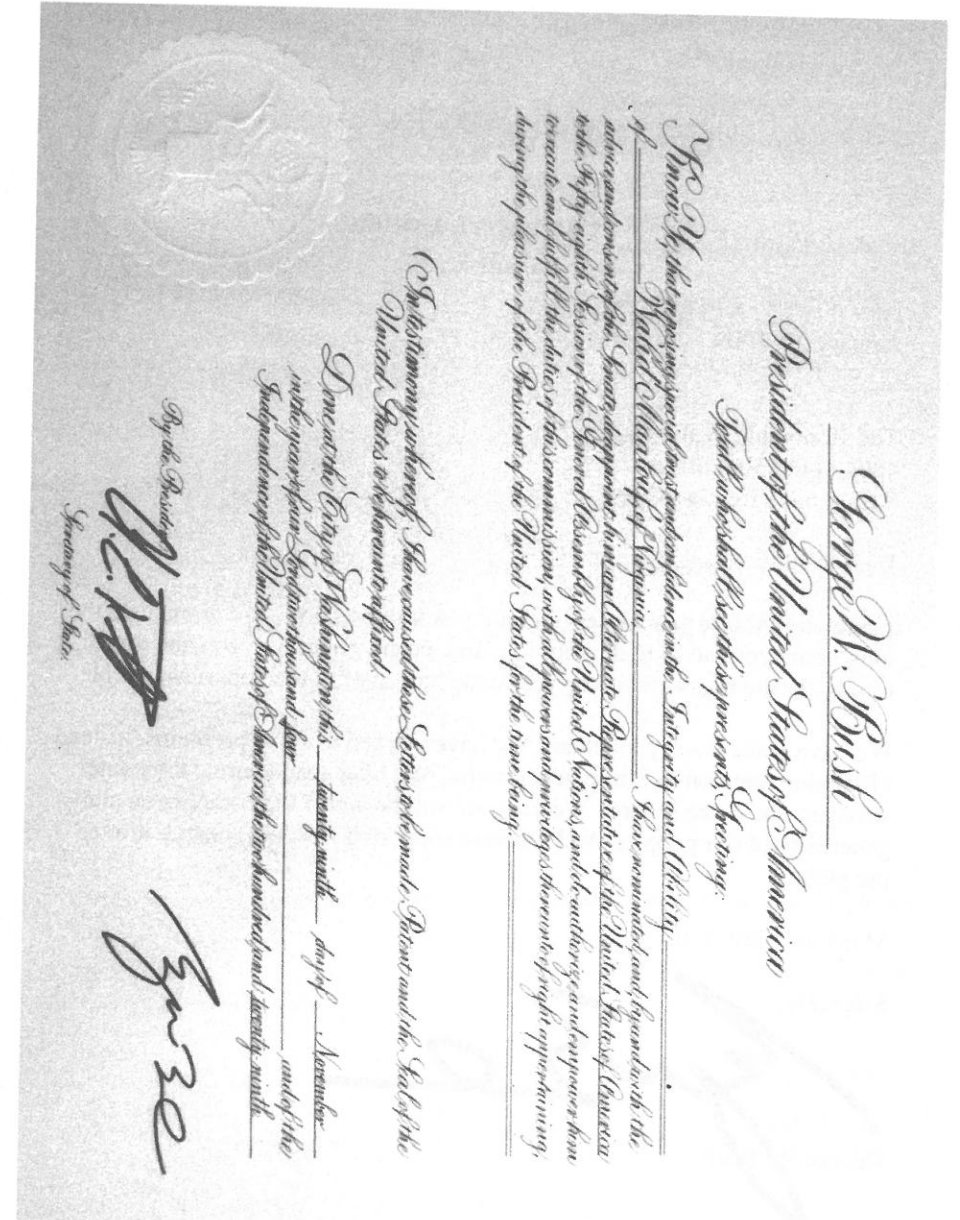 George W. Bush
President of the United States of America
To all who shall see these presents, Greeting:
Know Ye, that reposing special trust and confidence in the Integrity and Ability
of Walid Maalouf, of Virginia, I have nominated, and, by and with the
advice and consent of the Senate, do appoint him an Alternate Representative of the United States of America
to the Fifty-eighth Session of the General Assembly of the United Nations, and do authorize and empower him
to execute and fulfill the duties of this commission, with all powers and privileges thereunto of right appertaining,
during the pleasure of the President of the United States for the time being.
In testimony whereof, I have caused these Letters to be made Patent and the Seal of the
United States to be hereunto affixed.
Done at the City of Washington this twenty-ninth day of November
in the year of our Lord two thousand four and of the
Independence of the United States of America, the two hundred and twenty-ninth.
By the President
Secretary of State.